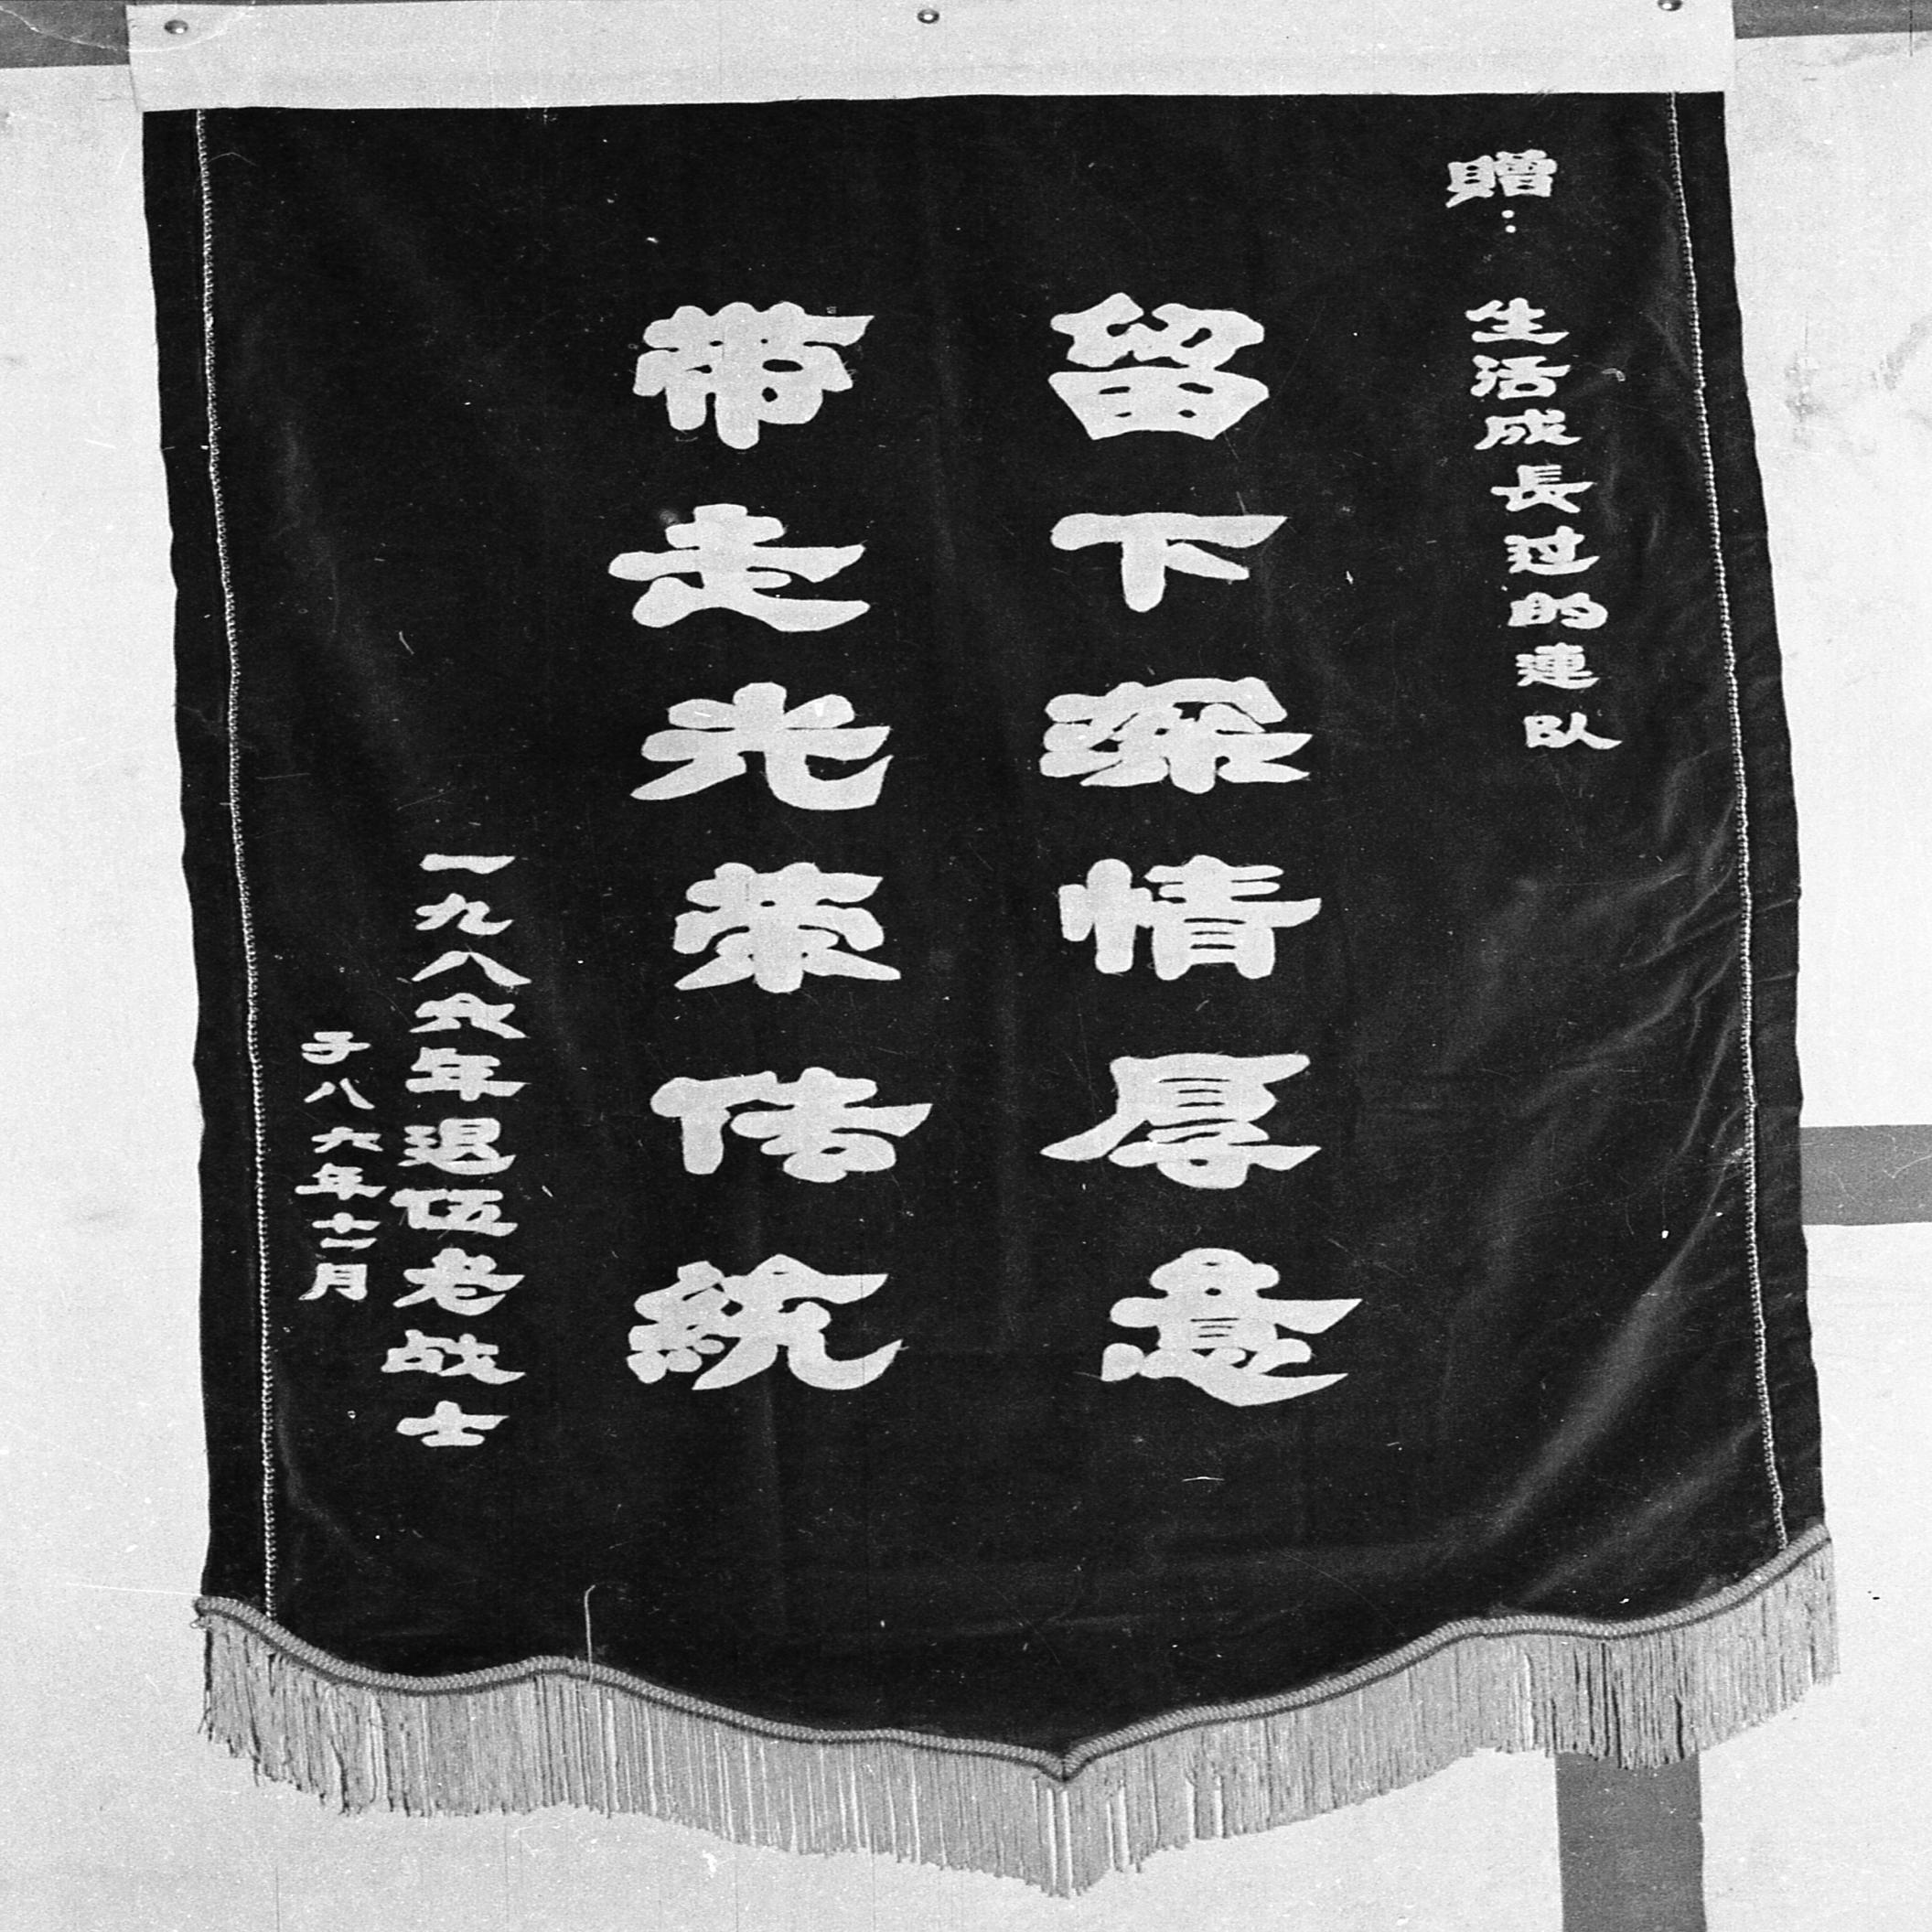 贈：生活成長过的連队
留下深情厚意
带走光荣传統
一九八六年退伍老战士
于八六年十二月